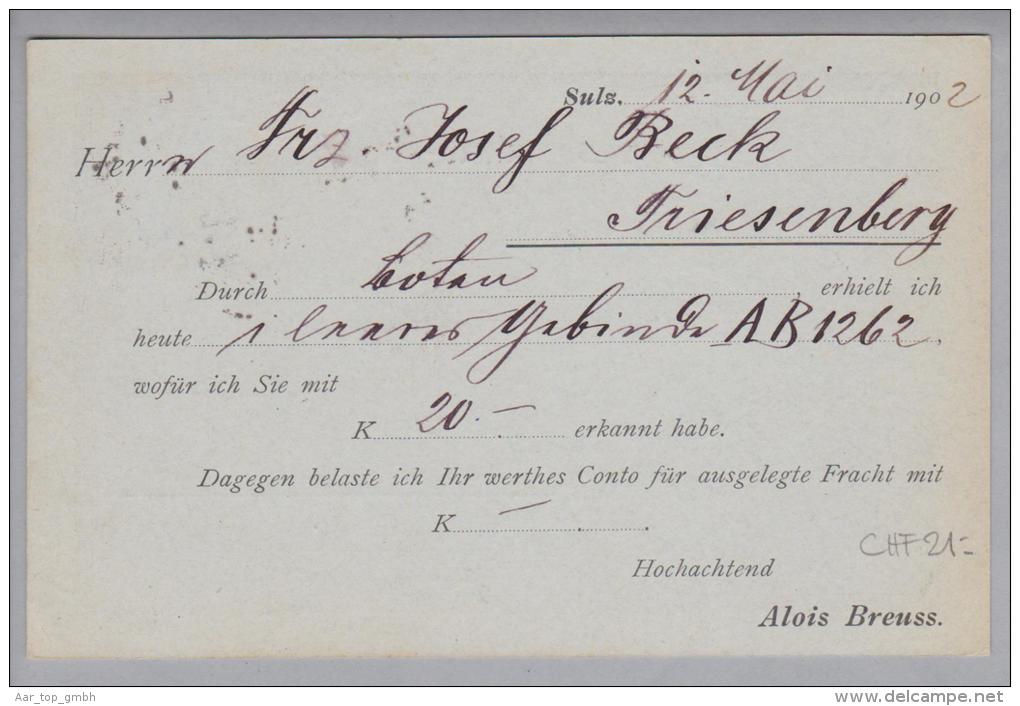 Sulz, 12. Mai 1902
Herrn Frz. Josef Beck
Triesenberg
Durch Boten, erhielt ich
heute 1 leeres Gebinde AB 1262,
wofür ich Sie mit
K 20.— erkannt habe.
Dagegen belaste ich Ihr werthes Conto für ausgelegte Fracht mit
K — .
CHF 21.-
Hochachtend
Alois Breuss.
Aar_top_gmbh
www.delcampe.net